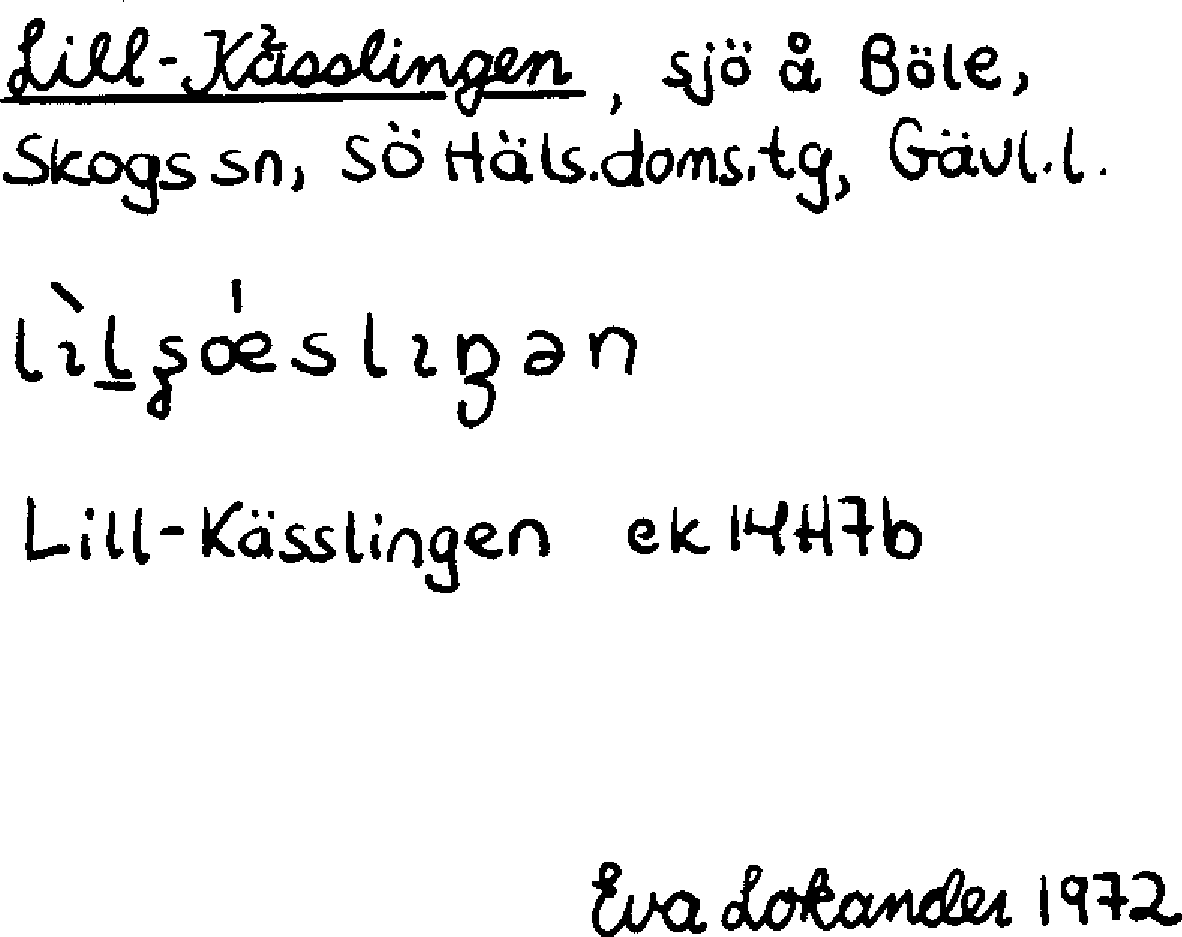 Lill-Kässlingen, sjö å Böle,
Skogs sn, Sö Häls.doms.tg, Gävl.l.
Lill-Kässlingen ek 14H7b
Eva Lokander 1972